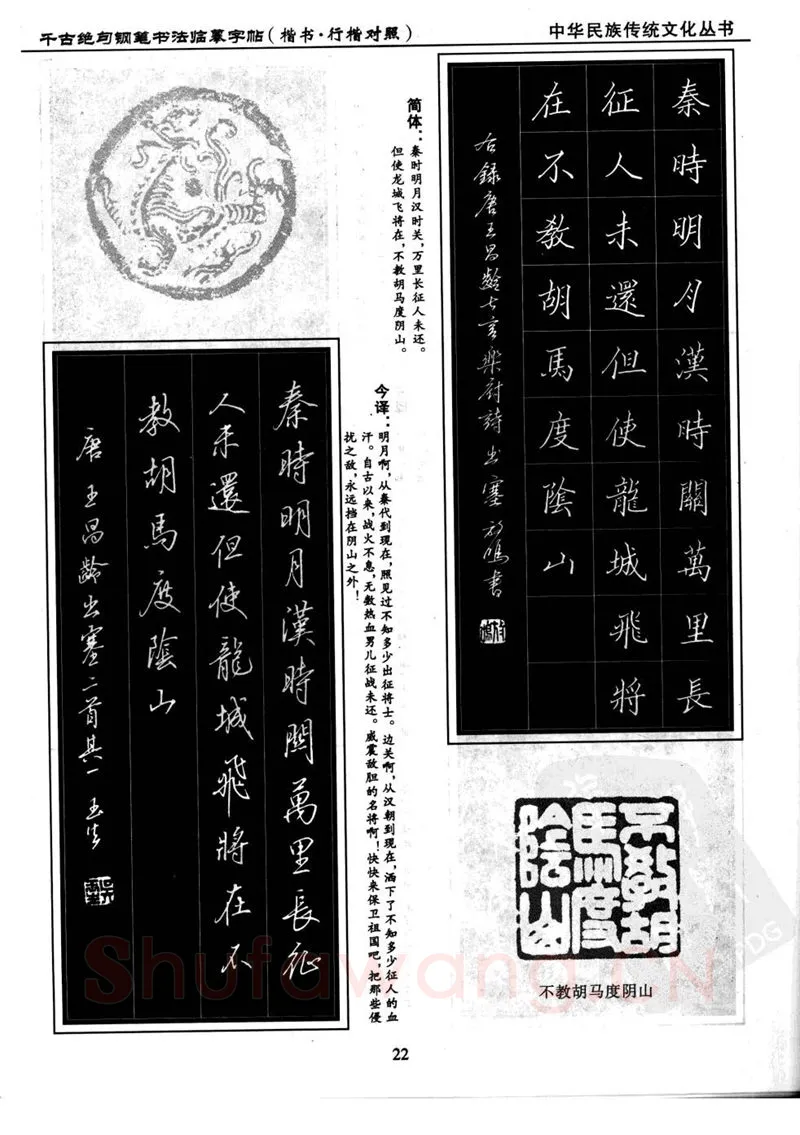 千古绝句钢笔书法临摹字帖(楷书·行楷对照)
中华民族传统文化丛书
秦時明月漢時關萬里長
征人未還但使龍城飛將
在不教胡馬度陰山
右錄唐王昌齡七言樂府詩出塞 書
简体：秦时明月汉时关，万里长征人未还。
但使龙城飞将在，不教胡马度阴山。
今译：明月啊，从秦代到现在，照见过不知多少出征将士。边关啊，从汉朝到现在，洒下了不知多少征人的血
汗。自古以来，战火不息，无数热血男儿征战未还。威震敌胆的名将啊！快快来保卫祖国吧，把那些侵
扰之敌，永远挡在阴山之外！
秦時明月漢時關萬里長征
人未還但使龍城飛將在不
教胡馬度陰山
唐王昌齡出塞二首其一
不教胡
馬度
陰山
不教胡马度阴山
22
Shufawang.CN